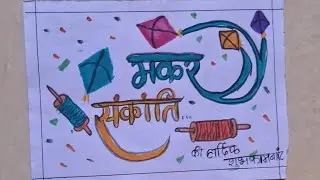 मकर
संक्रांति...
की हार्दिक
शुभकामनाएं